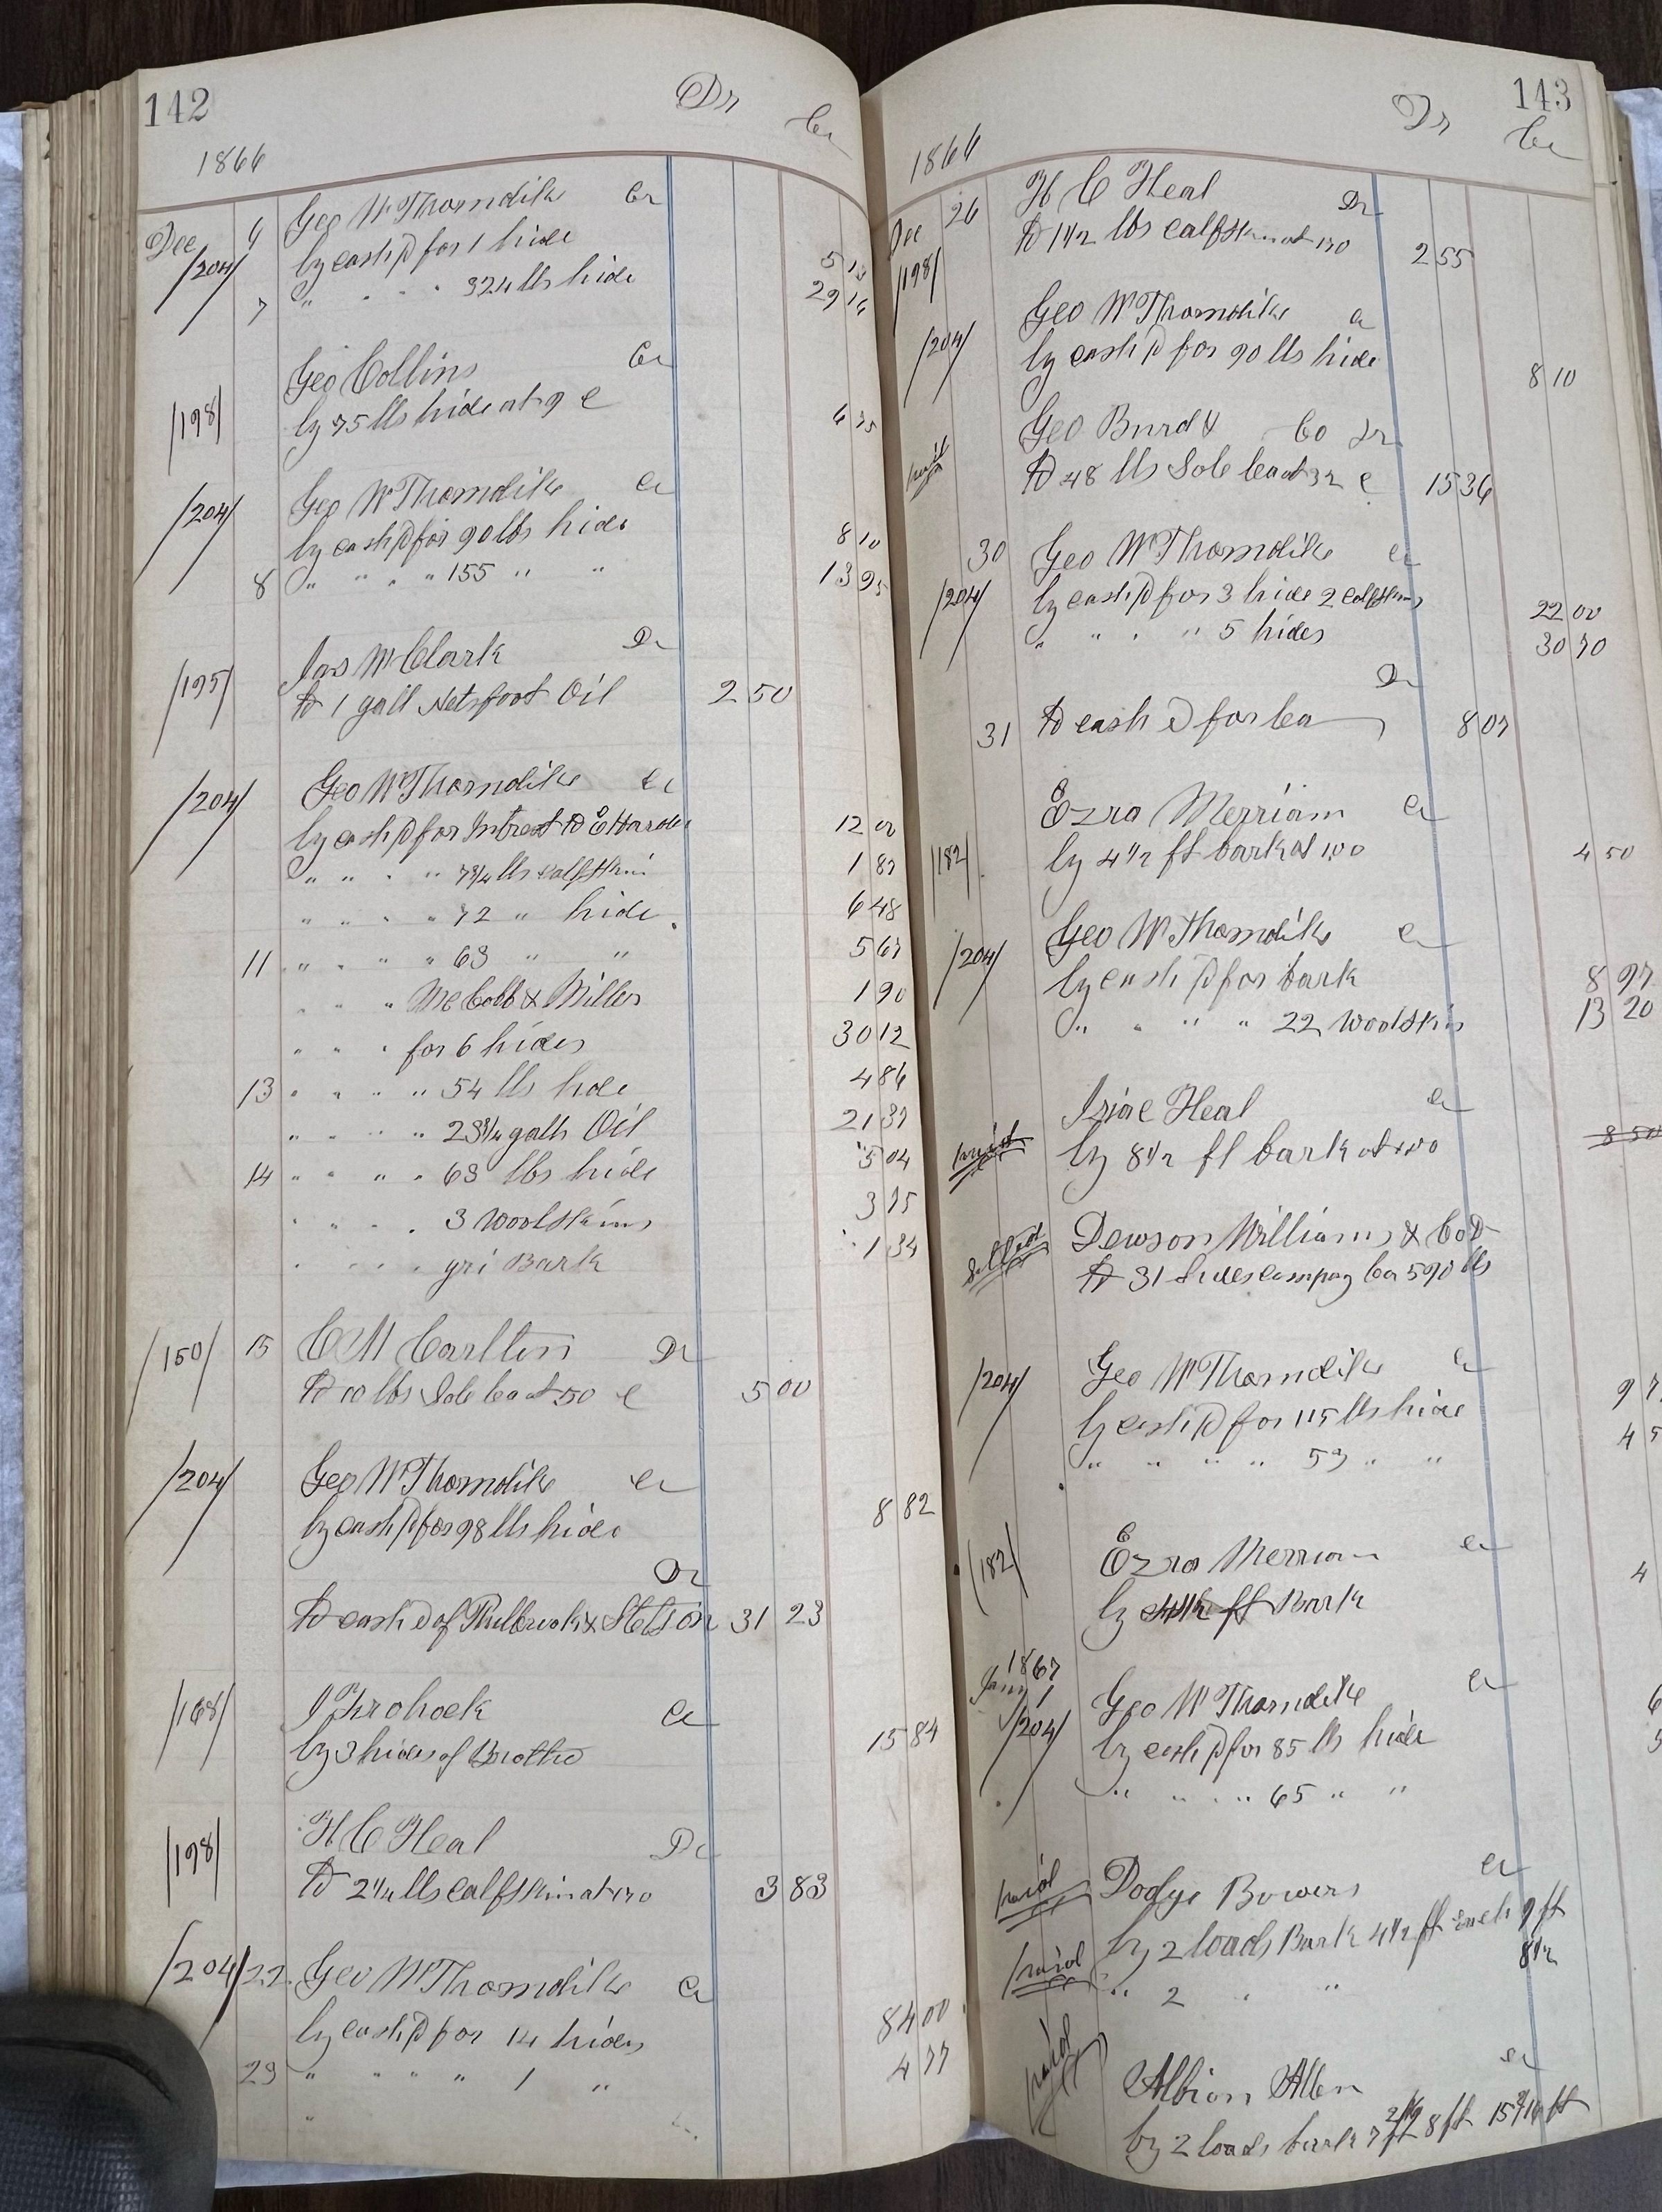 142 Dr Cr
1866
Dec 6 Geo W Thorndike Cr
/204/ by cash pd for 1 hide 5
7 " " " " 324 lbs hide 29 16
Geo Collins Cr
/198/ by 75 lbs hide at 9 c 6 75
/204/ Geo W Thorndike Cr
by cash pd for 90 lbs hide 8 10
8 " " " " 155 " " 13 95
Jas W Clark Dr
/195/ to 1 gall Netsfoot Oil 2 50
/204/ Geo W Thorndike Cr
by cash pd for Intrest to E Harden 12 00
" " " " 7 3/4 lbs calfskin 1 87
" " " " 72 " hide 6 48
11 " " " " 63 " " 5 67
" " " McCobb & Miller 1 90
" " " for 6 hides 30 12
13 " " " " 54 lbs hide 4 86
" " " " 23 3/4 galls Oil 21 37
14 " " " " 63 lbs hide 5 04
" " " " 3 Woolskins 3 75
" " " " Bark 1 34
/150/ 15 C M Carlton Dr
to 10 lbs Sole lea at 50 c 5 00
/204/ Geo W Thorndike Cr
by cash pd for 98 lbs hide 8 82
Dr
to cash of & Stetson 31 23
/168/ J Frohock Cr
by 3 hides of Brother 15 84
/198/ H C Heal Dr
to 2 1/4 lbs calfskin at 170 3 83
/204/ 22 Geo W Thorndike Cr
by cash pd for 14 hides 84 00
29 " " " " 1 " 4 77
143 Dr Cr
1866
Dec 26 H C Heal Dr
/198/ to 1 1/2 lbs calfskin at 170 2 55
Geo W Thorndike Cr
/204/ by cash pd for 90 lbs hide 8 10
Geo Burd & Co Dr
paid to 48 lbs Sole lea at 32 c 15 36
30 Geo W Thorndike Cr
/204/ by cash pd for 3 hide 2 calfskins 22 00
" " " " 5 hides 30 70
Dr
31 to cash for lea 8 07
Ezra Merriam Cr
/182/ by 4 1/2 ft bark at 100 4 50
Geo W Thorndike Cr
/204/ by cash pd for bark 8 97
" " " " 22 Woolskins 13 20
Isiac Heal Cr
paid by 8 1/2 ft bark at 100 8 50
settled Dewson Williams & Co Dr
to 31 Sides lea 590 lbs
/204/ Geo W Thorndike Cr
by cash pd for 115 lbs hide 9 7
" " " " 53 " " 4 5
/182/ Ezra Merriam Cr
by ft Bark 4
1867
Jany 1 Geo W Thorndike Cr
/204/ by cash pd for 85 lbs hide 6
" " " " 65 " " 5
paid Dodge Bowers Cr
by 2 loads Bark 4 1/2 ft each 9 ft
paid " 2 " " 8 1/2
paid Albion Allen Cr
by 2 loads bark 7 8 ft 15 ft